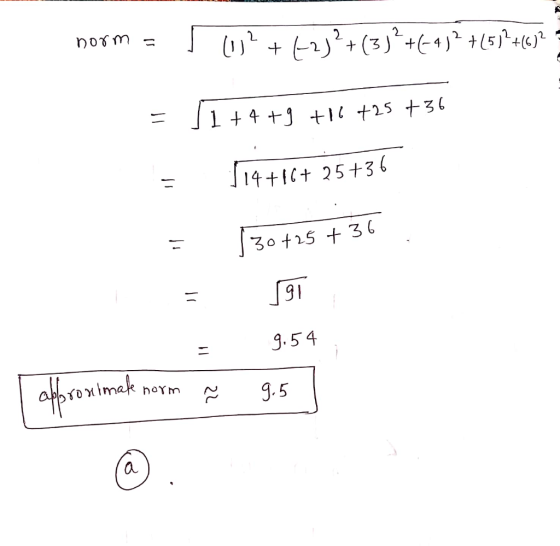 norm = √(1)² + (-2)² + (3)² + (-4)² + (5)² + (6)²
= √1 + 4 + 9 + 16 + 25 + 36
= √14 + 16 + 25 + 36
= √30 + 25 + 36
= √91
= 9.54
approximate norm ≈ 9.5
(a) .